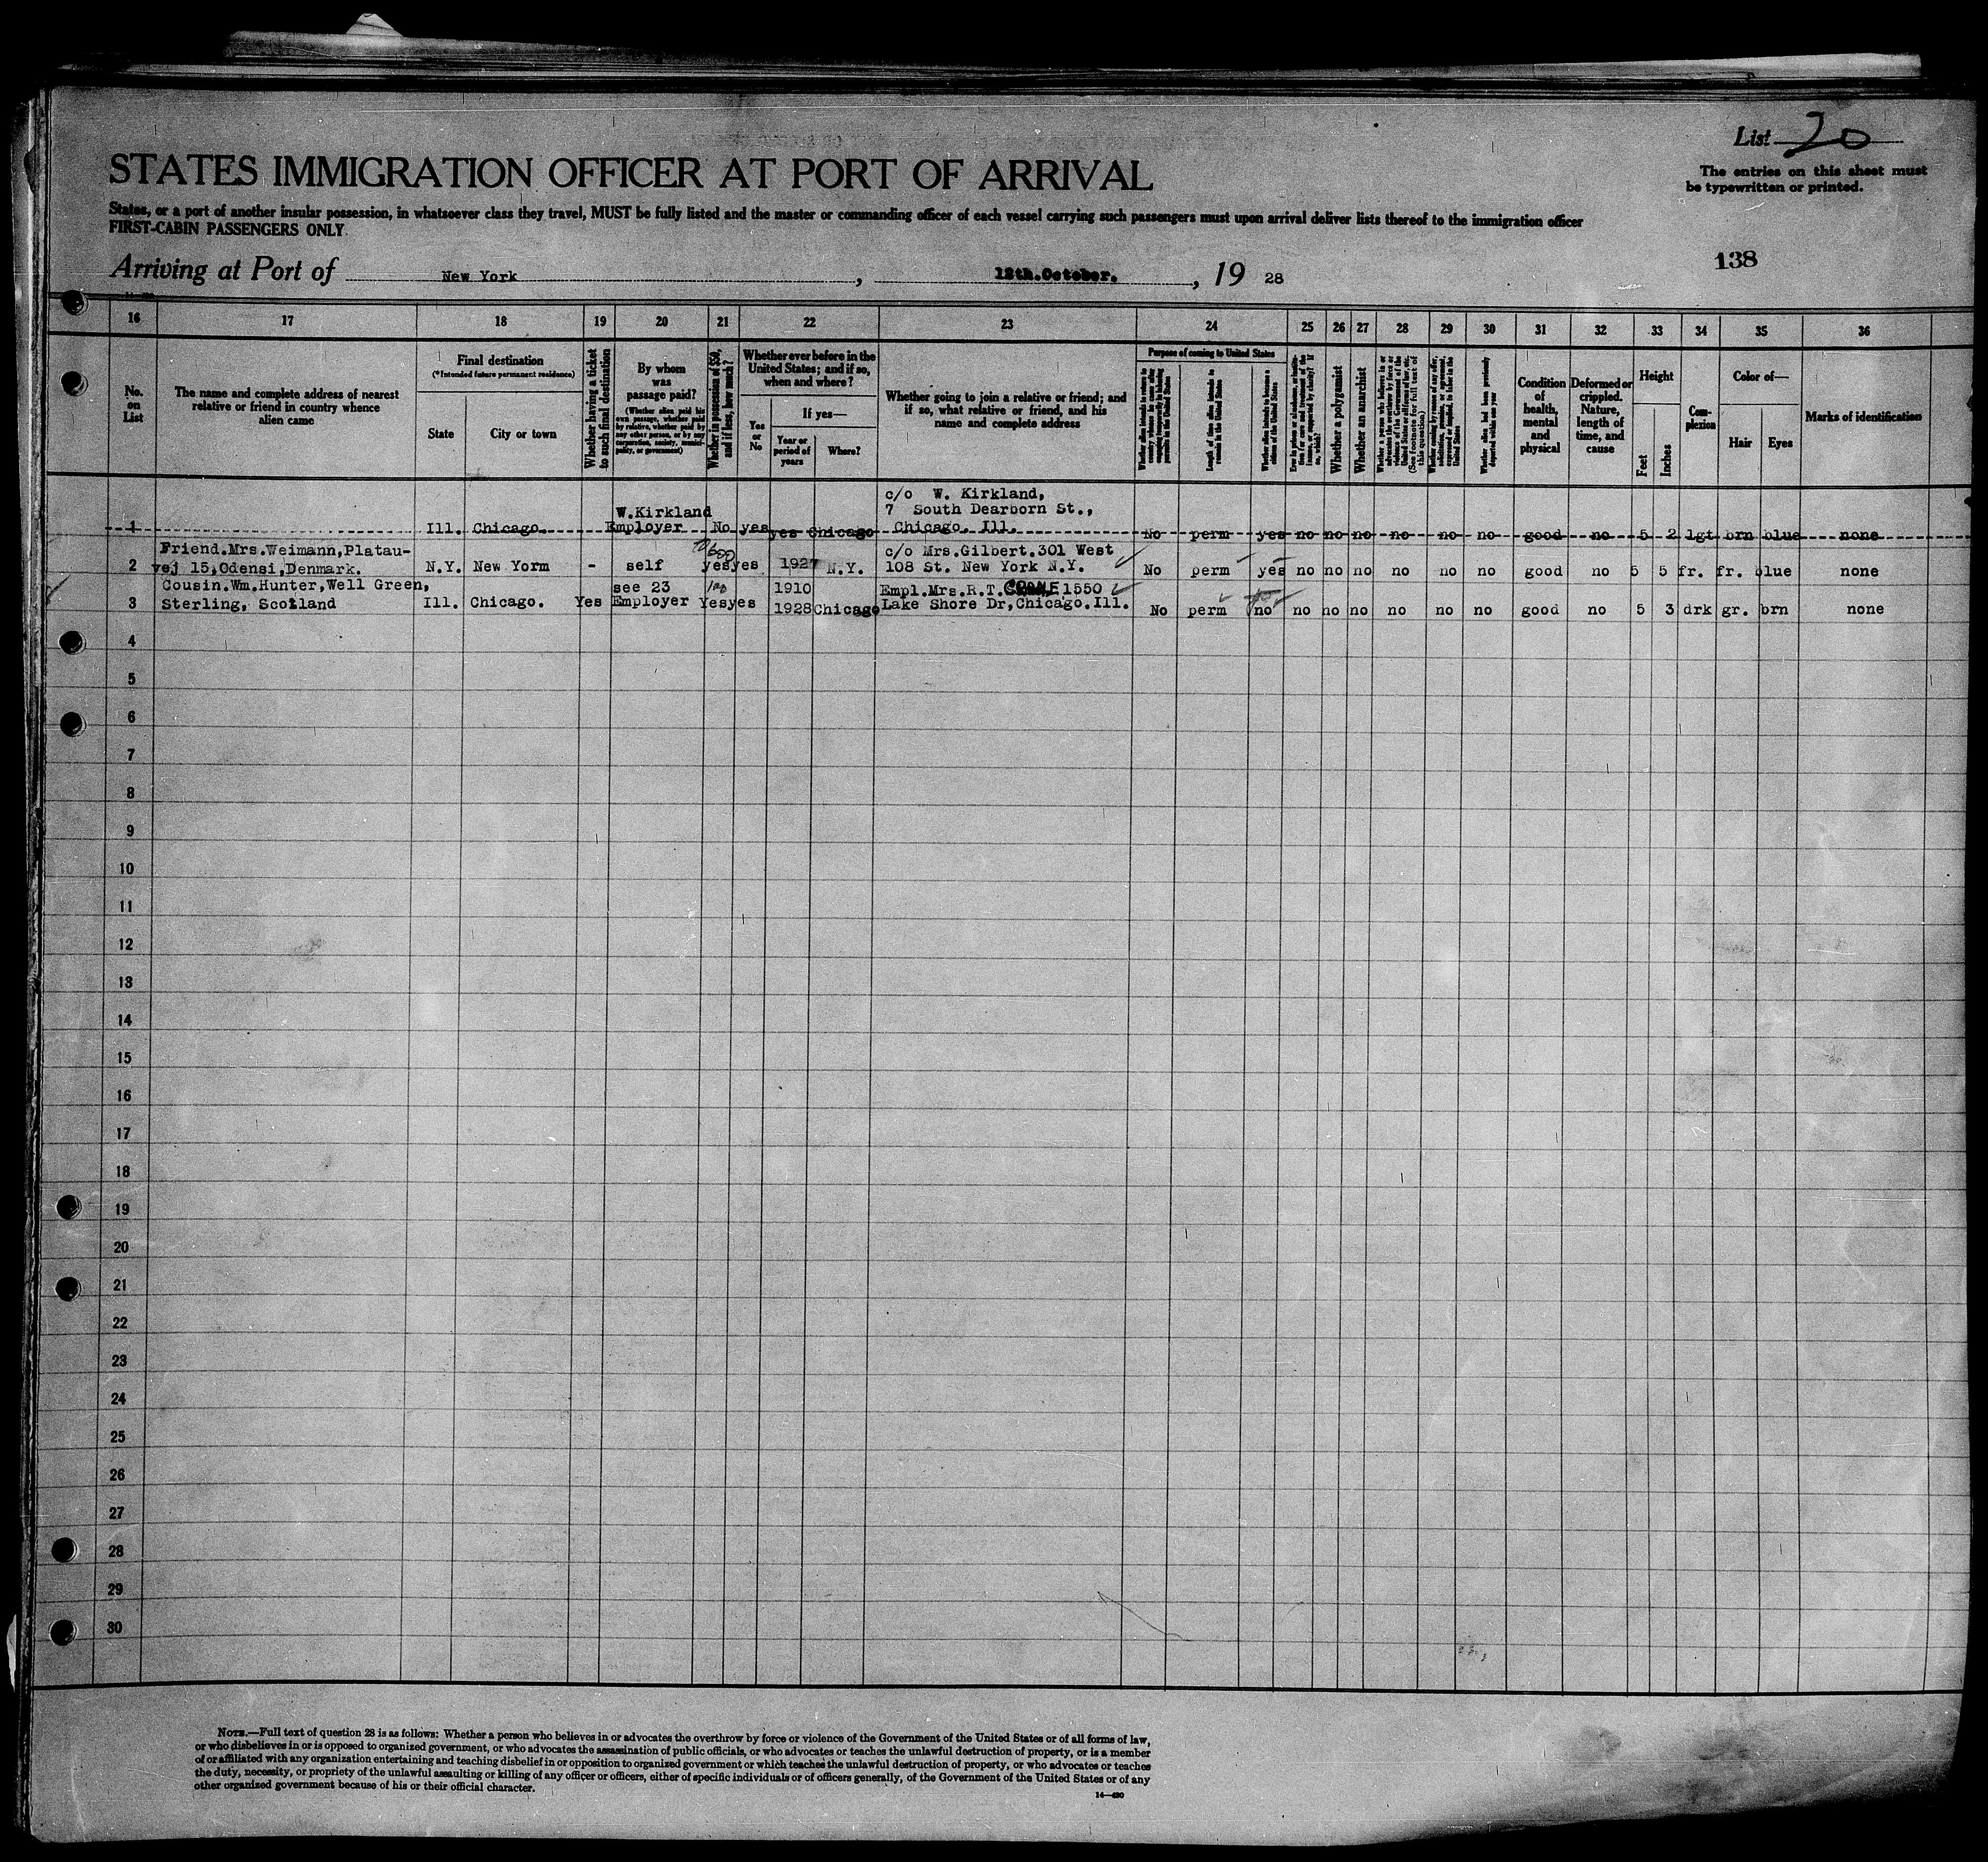 List 20
The entries on this sheet must
be typewritten or printed.
STATES IMMIGRATION OFFICER AT PORT OF ARRIVAL
States, or a port of another insular possession, in whatsoever class they travel, MUST be fully listed and the master or commanding officer of each vessel carrying such passengers must upon arrival deliver lists thereof to the immigration officer
FIRST-CABIN PASSENGERS ONLY
138
Arriving at Port of New York , October. , 19 28
16 17 18 19 20 21 22 23 24 25 26 27 28 29 30 31 32 33 34 35 36
No. on List
The name and complete address of nearest
relative or friend in country whence
alien came
Final destination
(*Intended future permanent residence)
State
City or town
Whether having a ticket
to such final destination
By whom
was
passage paid?
(Whether alien paid his
own passage, whether paid
by relative, whether paid by
any other person, or by any
corporation, society, munici-
pality, or government)
Whether in possession of $50,
and if less, how much?
Whether ever before in the
United States; and if so,
when and where?
Yes
or
No
If yes—
Year or
period of
years
Where?
Whether going to join a relative or friend; and
if so, what relative or friend, and his
name and complete address
Purpose of coming to United States
Length of time alien intends to
remain in the United States
Whether alien intends to become a
citizen of the United States
Whether a polygamist
Whether an anarchist
(See footnote for full text of
this question)
Whether alien had been previously
deported within one year
Condition
of
health,
mental
and
physical
Deformed or
crippled.
Nature,
length of
time, and
cause
Height
Feet
Inches
Com-
plexion
Color of—
Hair
Eyes
Marks of identification
c/o W. Kirkland,
W.Kirkland 7 South Dearborn St.,
1 Ill. Chicago. Employer No yes yes Chicago Chicago. Ill. No perm yes no no no no no no good no 5 2 lgt brn blue none
Friend.Mrs.Weimann,Platau- c/o Mrs.Gilbert.301 West
2 vej 15,Odensi,Denmark. N.Y. New Yorm - self yes yes 1927 N.Y. 108 St. New York N.Y. No perm yes no no no no no no good no 5 5 fr. fr. blue none
Cousin.Wm.Hunter,Well Green, see 23 1910 Empl.Mrs.R.T. CRANE 1550
3 Sterling, Scotland Ill. Chicago. Yes Employer Yes yes 1928 Chicago Lake Shore Dr,Chicago.Ill. No perm no no no no no no no good no 5 3 drk gr. brn none
4
5
6
7
8
9
10
11
12
13
14
15
16
17
18
19
20
21
22
23
24
25
26
27
28
29
30
NOTE.—Full text of question 28 is as follows: Whether a person who believes in or advocates the overthrow by force or violence of the Government of the United States or of all forms of law,
or who disbelieves in or is opposed to organized government, or who advocates the assassination of public officials, or who advocates or teaches the unlawful destruction of property, or is a member
of or affiliated with any organization entertaining and teaching disbelief in or opposition to organized government or which teaches the unlawful destruction of property, or who advocates or teaches
the duty, necessity, or propriety of the unlawful assaulting or killing of any officer or officers, either of specific individuals or of officers generally, of the Government of the United States or of any
other organized government because of his or their official character.
14—430